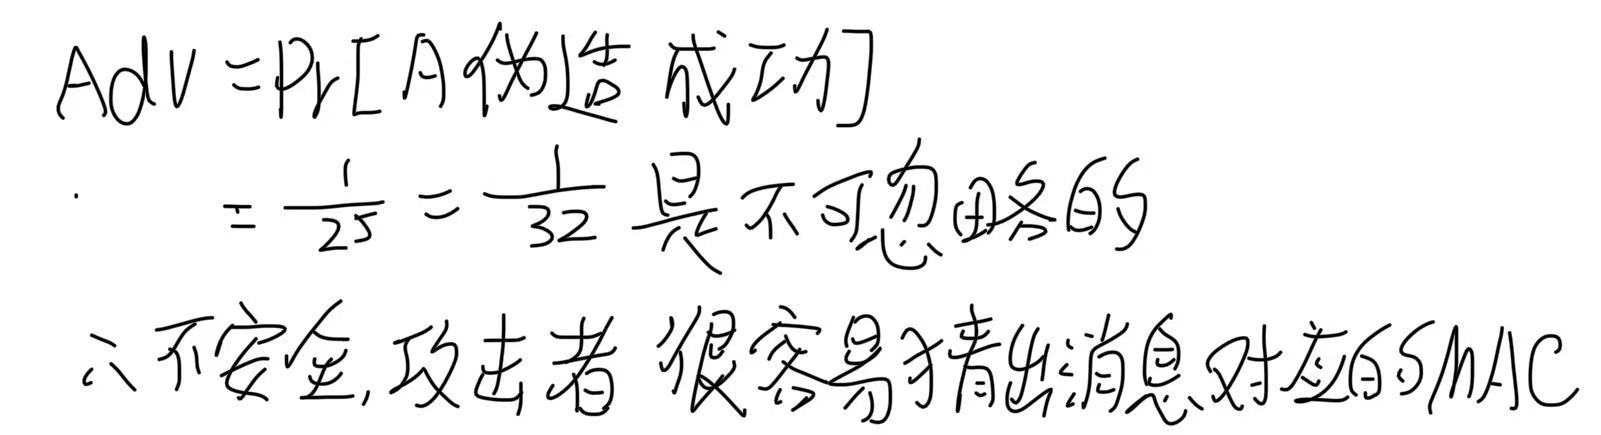 Adv = Pr[A伪造成功]
= 1/25 = 1/32 是不可忽略的
∴不安全,攻击者很容易猜出消息对应的MAC